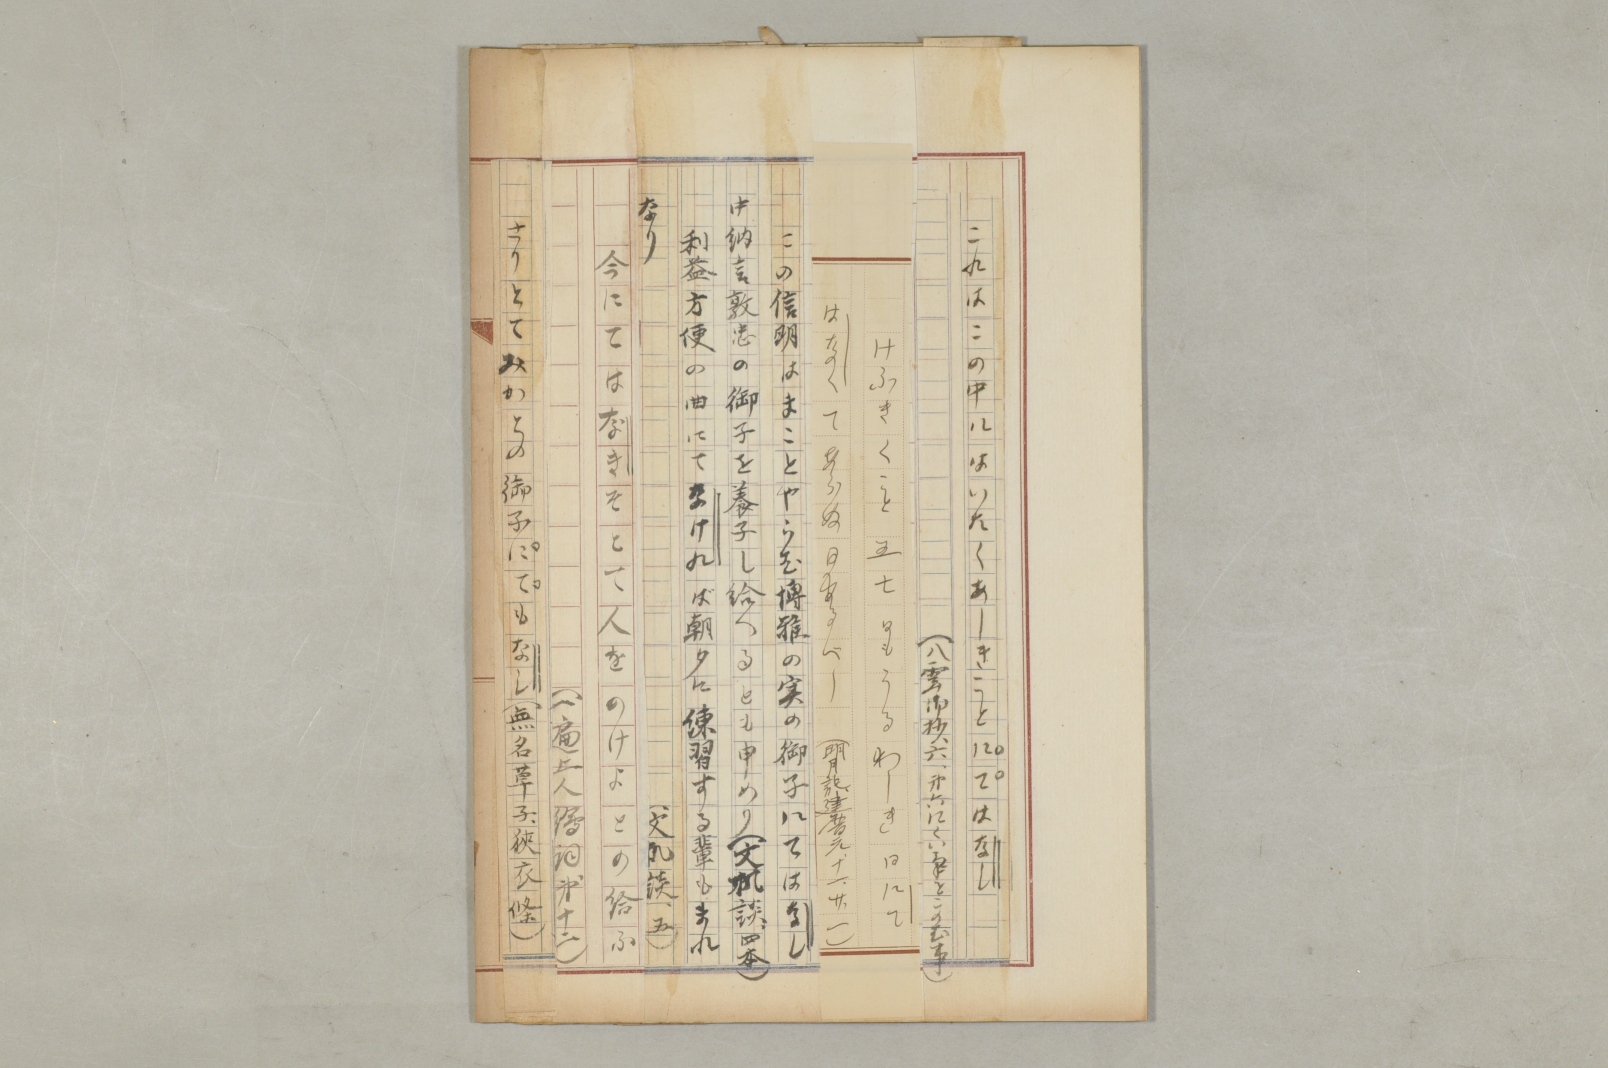 これはこの中ルはいたくあしきことにてはなし
(八雲御抄、六、
けふきくこと五七日もうるわしき日にて
はなくてあらぬ日あるべし
(明月記、建暦元、十一、廿一)
この信明はまことやらむ博雅の実の御子にてはなし
中納言敦忠の御子を養子し給へるとも申めり(文机談、四本)
利益方便の曲にてなければ朝夕に練習する輩もまれ
なり
(文机談、五)
今にてはなきそとて人をのけよとの給ふ
(一遍上人繪詞第十二)
さりとてみかどの御子にてもなし(無名草子、狭衣條)